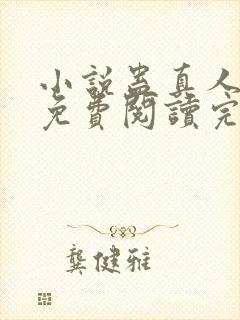 小說蠱真人
免費閱讀完
龔健雅